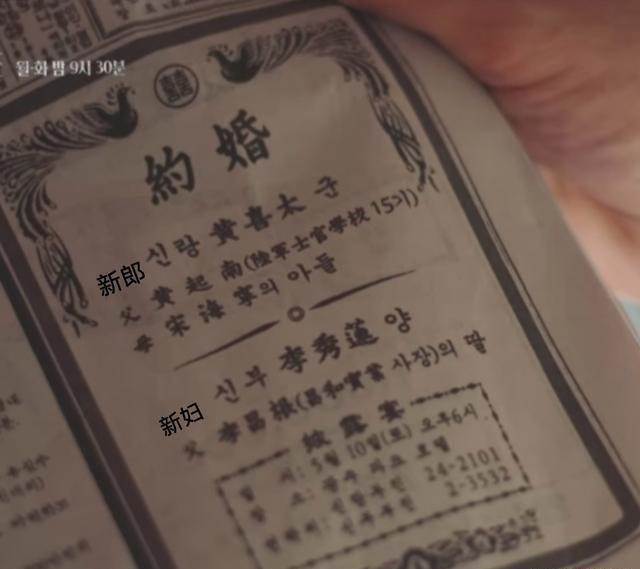 월·화 밤 9시 30분
囍
約婚
신랑 黃喜太 군
新郎
父 黃起南(陸軍士官學校 15기)
母 宋海寧의 아들
신부 李秀蓮 양
新妇
父 李昌根(昌和實業 사장)의 딸
披露宴
일 시: 5월 10일(토) 오후6시
장 소: 광주 파크 호텔
연락처: 신랑부친 24-2101
신부부친 2-3532